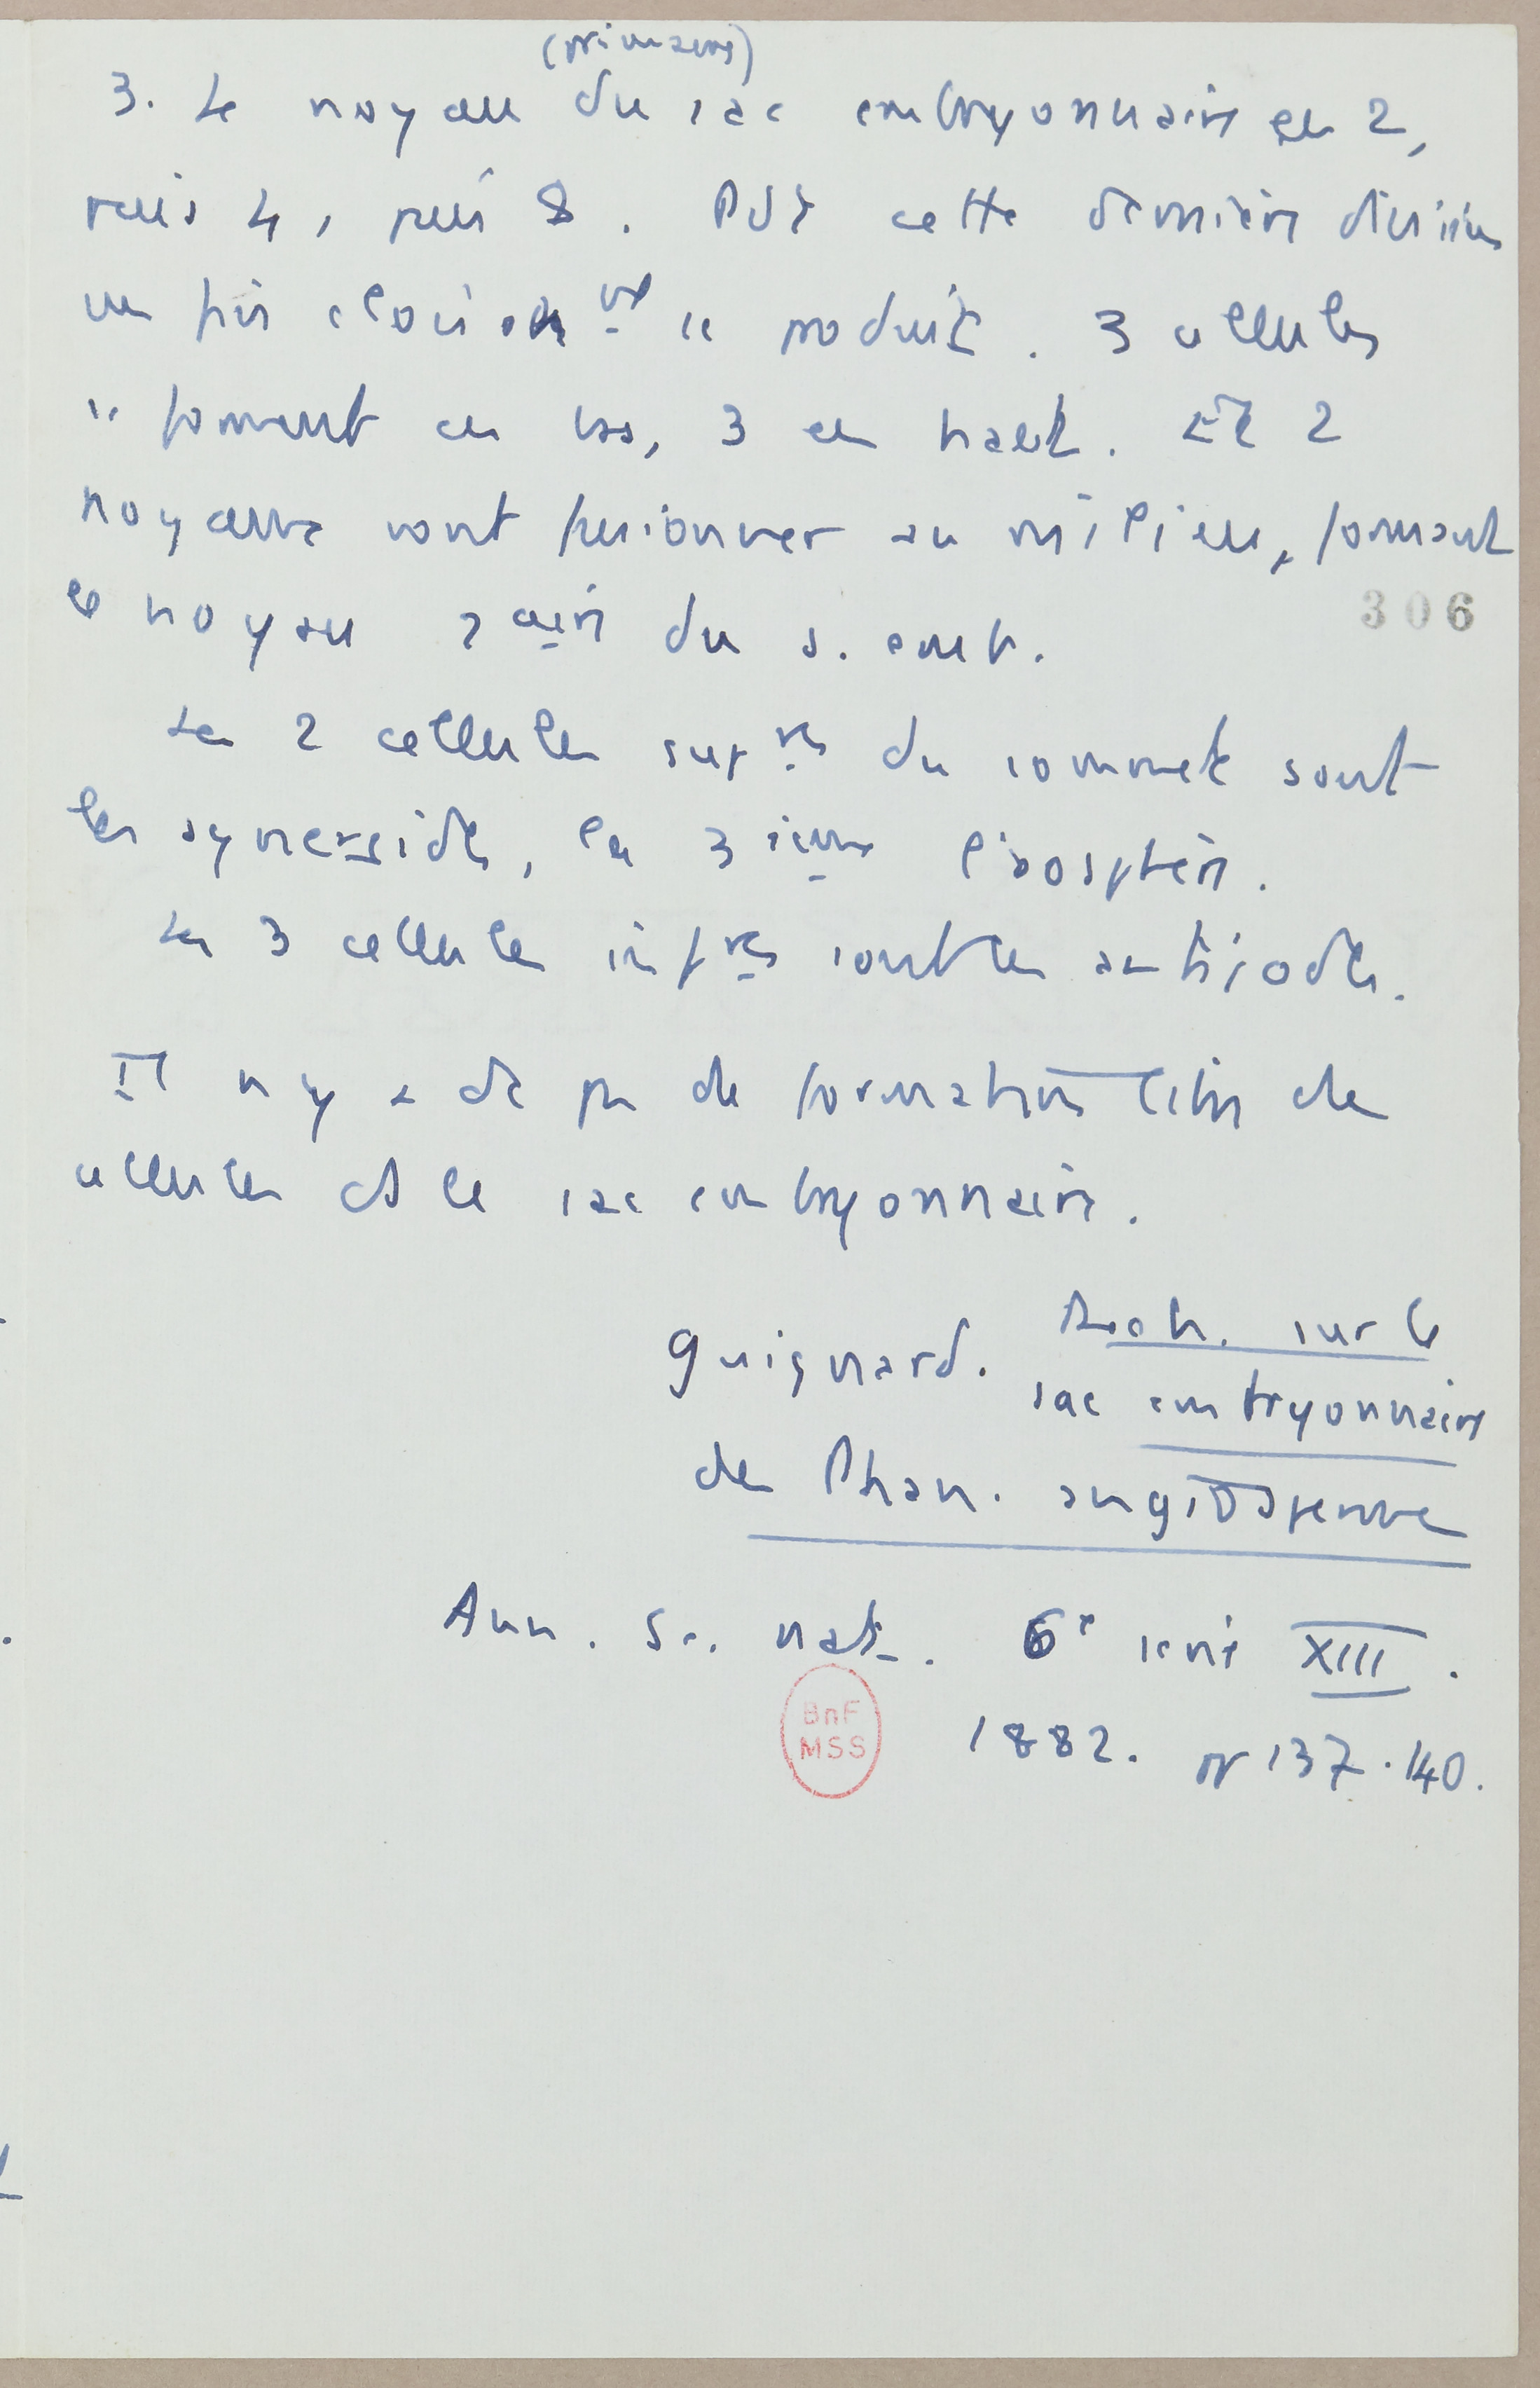 (primaire)
3. Le noyau du sac embryonnaire en 2,
puis 4, puis 8. Pdt cette dernière division
un fin cloisonnt se produit. 3 cellules
se forment en bas, 3 en haut. Et 2
noyaux vont fusionner au milieu, formant
le noyau 2aire du s. emb.
306
Les 2 cellules supres du sommet sont
les synergides, la 3ième l'oosphère.
Les 3 cellules infres sont les antipodes.
Il n'y a dc pas de formation libre de
cellules ds le sac embryonnaire.
Guignard. Rech. sur le
sac embryonnaire
des Phan. angiospermes
Ann. Sc. nat. 6e série XIII.
1882. pp 137.140.
BnF
MSS